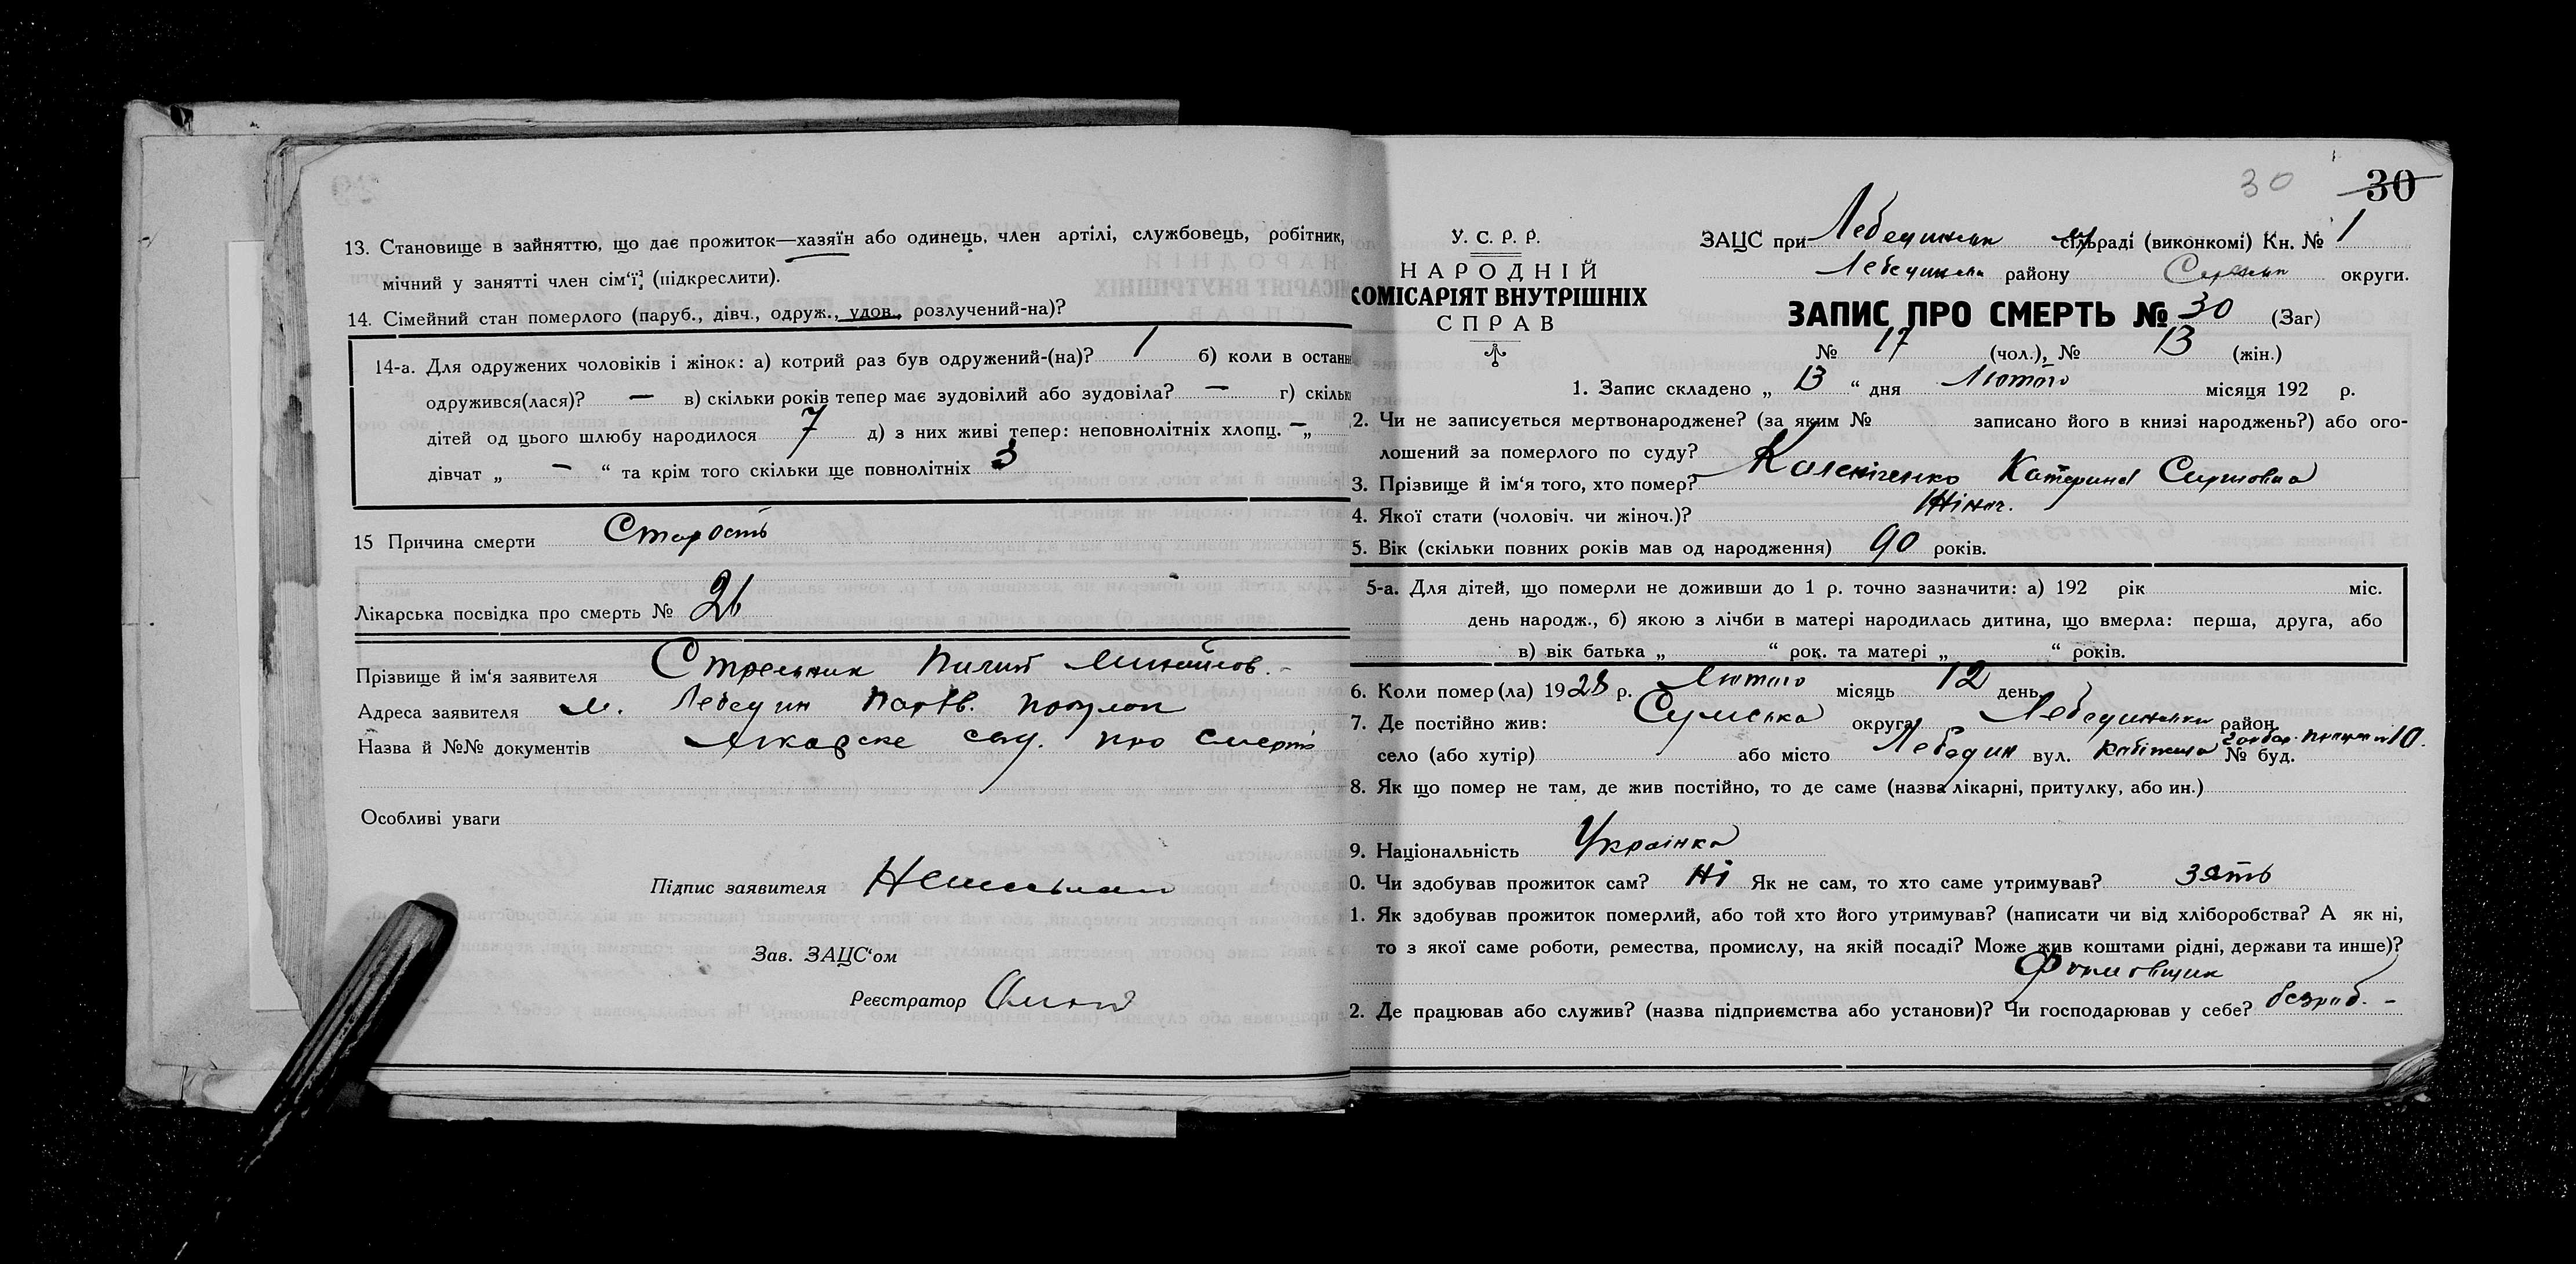 13. Становище в зайняттю, що дає прожиток—хазяїн або одинець, член артілі, службовець, робітник,
мічний у занятті член сім'ї; (підкреслити).
14. Сімейний стан померлого (паруб., дівч., одруж., удов., розлучений-на)?
14-а. Для одружених чоловіків і жінок: а) котрий раз був одружений-(на)? 1 б) коли в останн
одружився(лася)? — в) скільки років тепер має зудовілий або зудовіла? — г) скільк
дітей од цього шлюбу народилося 7 д) з них живі тепер: неповнолітніх хлопц. — „
дівчат „ — “ та крім того скільки ще повнолітніх 3
15 Причина смерти Старость
Лікарська посвідка про смерть № 21
Прізвище й ім'я заявителя Стрельник Пилип
Адреса заявителя м. Лебедин
Назва й №№ документів Лікарске про смерть
Особливі уваги
Підпис заявителя
Зав. ЗАЦС'ом
Реєстратор
30 30
У. С. Р. Р.
НАРОДНІЙ
КОМІСАРІЯТ ВНУТРІШНІХ
СПРАВ
ЗАЦС при Лебединськ сільраді (виконкомі) Кн. № 1
Лебединськ району Сумськ округи.
ЗАПИС ПРО СМЕРТЬ № 30 (Заг)
№ 17 (чол.), № 13 (жін.)
1. Запис складено „ 13 “ дня Лютого місяця 192 р.
2. Чи не записується мертвонароджене? (за яким № записано його в книзі народжень?) або ого-
лошений за померлого по суду?
3. Прізвище й ім'я того, хто помер? Катерина
4. Якої стати (чоловіч. чи жіноч.)? Жіноч.
5. Вік (скільки повних років мав од народження) 90 років.
5-а. Для дітей, що померли не доживши до 1 р. точно зазначити: а) 192 рік міс.
день народж., б) якою з лічби в матері народилась дитина, що вмерла: перша, друга, або
в) вік батька „ “ рок. та матері „ “ років.
6. Коли помер(ла) 1928 р. Лютого місяць 12 день.
7. Де постійно жив: Сумська округа Лебединський район,
село (або хутір) або місто Лебедин вул. № буд. 10.
8. Як що помер не там, де жив постійно, то де саме (назва лікарні, притулку, або ин.)
9. Національність Українка
0. Чи здобував прожиток сам? Ні Як не сам, то хто саме утримував? зять
1. Як здобував прожиток померлий, або той хто його утримував? (написати чи від хліборобства? А як ні,
то з якої саме роботи, ремества, промислу, на якій посаді? Може жив коштами рідні, держави та инше)?
Формовщик
2. Де працював або служив? (назва підприємства або установи)? Чи господарював у себе? безроб. -